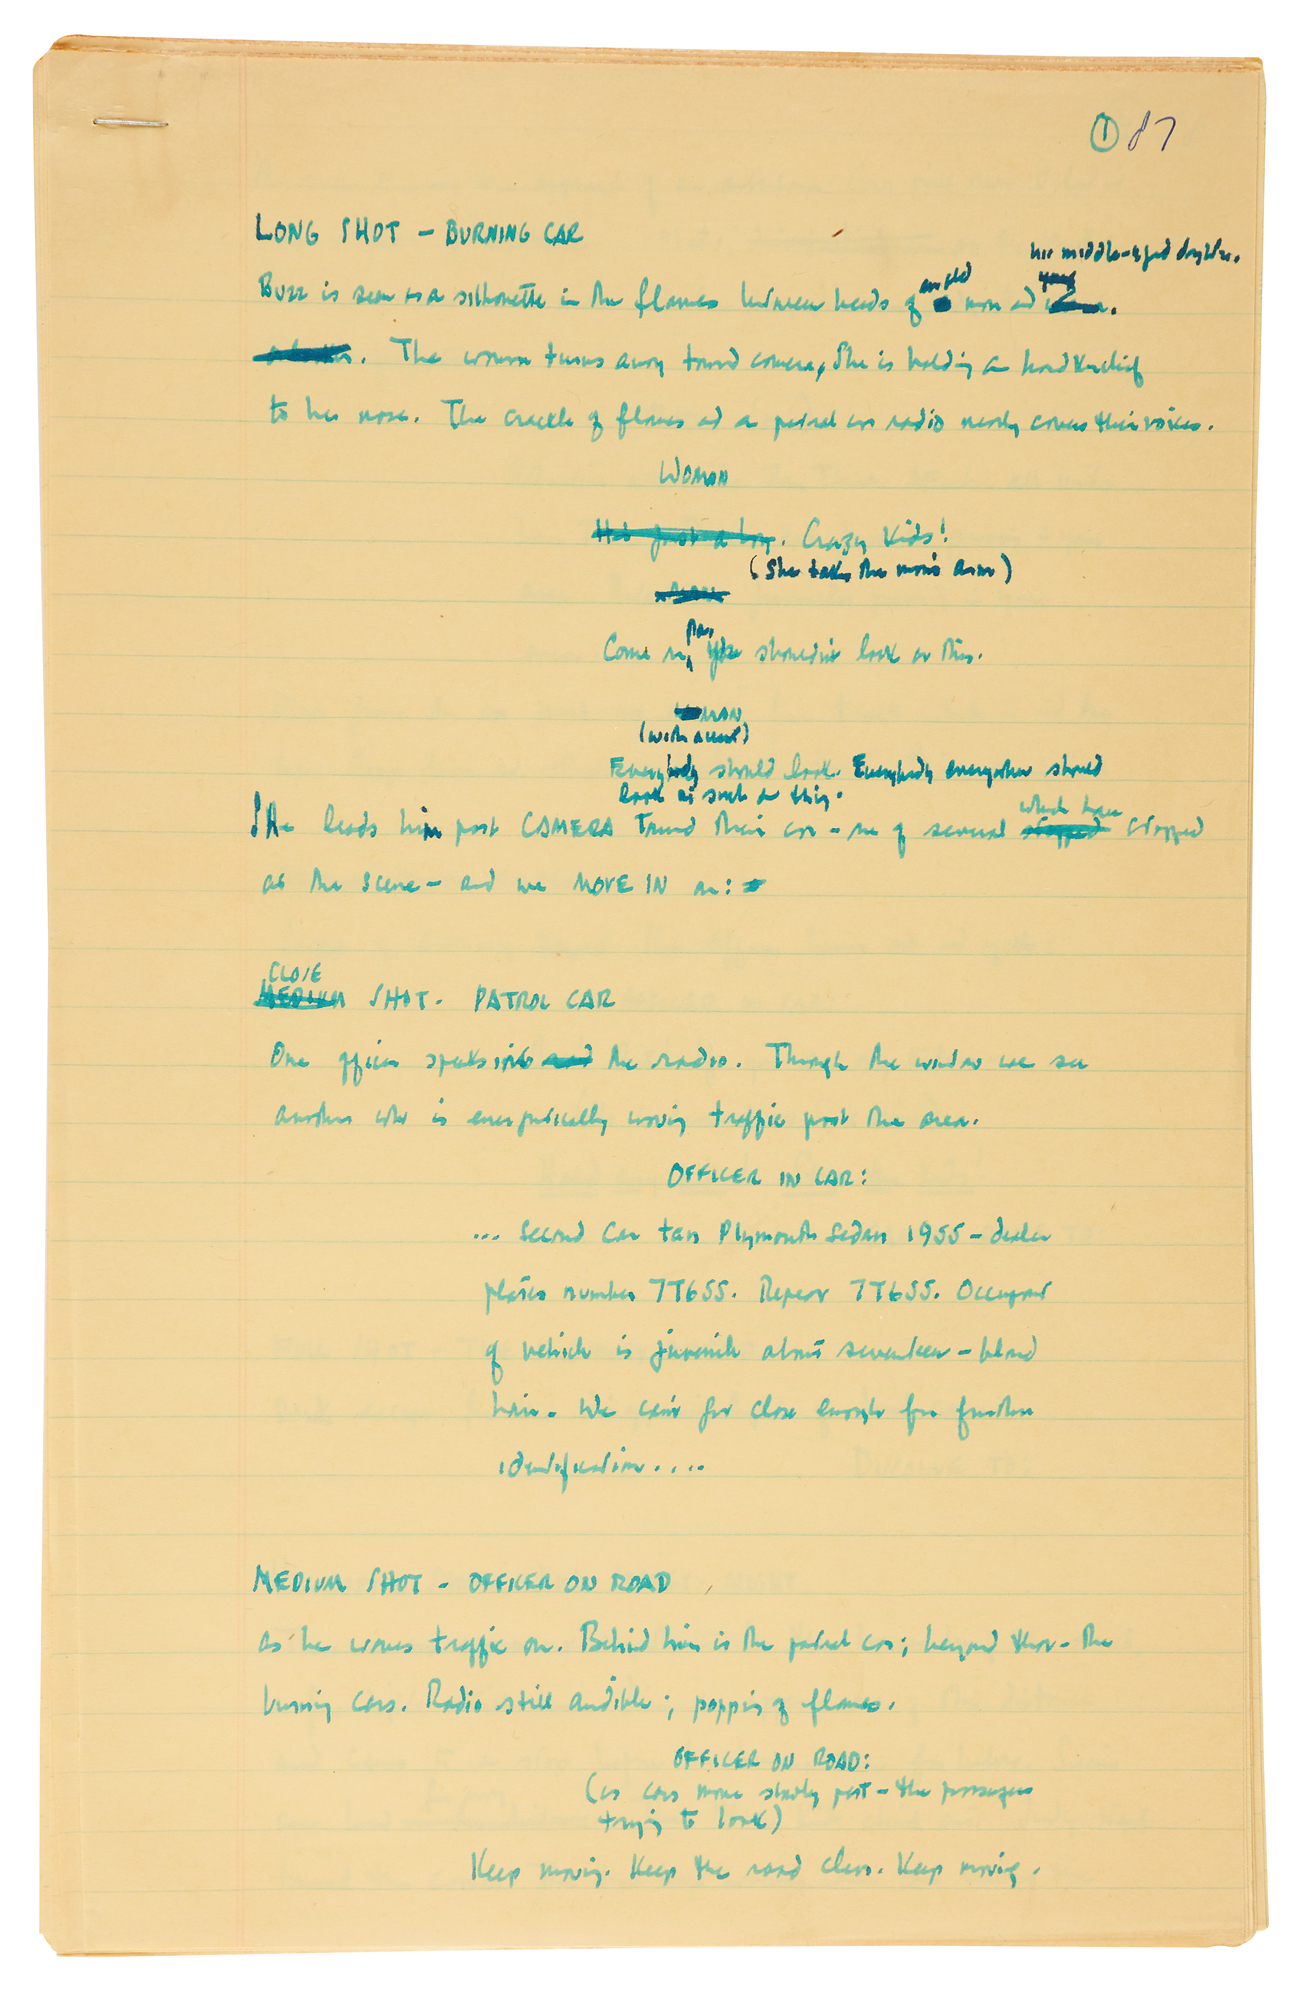 ① 87
LONG SHOT – BURNING CAR
his middle-aged daughter.
an old
Buzz is seen as a silhouette in the flames between heads of man and
. The woman turns away toward camera, She is holding a handkerchief
to her nose. The crackle of flames and a patrol car radio nearly covers their voices.
WOMAN
He's just a boy. Crazy kids!
(She takes the man's arm)
MAN
Come on, Pa, You shouldn't look at this.
MAN
(with accent)
Everybody should look. Everybody everywhere should
look at such a thing.
She leads him past CAMERA Toward their car – one of several stopped which have stopped
at the scene – and we MOVE IN on:
CLOSE
MEDIUM SHOT - PATROL CAR
One officer speaks into the radio. Through the window we see
another who is energetically waving traffic past the area.
OFFICER IN CAR:
... Second car tan Plymouth Sedan 1955 – dealer
plates number 7T655. Repeat 7T655. Occupant
of vehicle is juvenile about seventeen – blond
hair. We can't get close enough for further
identification....
MEDIUM SHOT - OFFICER ON ROAD
as he waves traffic on. Behind him is the patrol car; beyond that – the
burning cars. Radio still audible; popping of flames.
OFFICER ON ROAD:
(as cars move slowly past – the passengers
trying to look)
Keep moving. Keep the road clear. Keep moving.